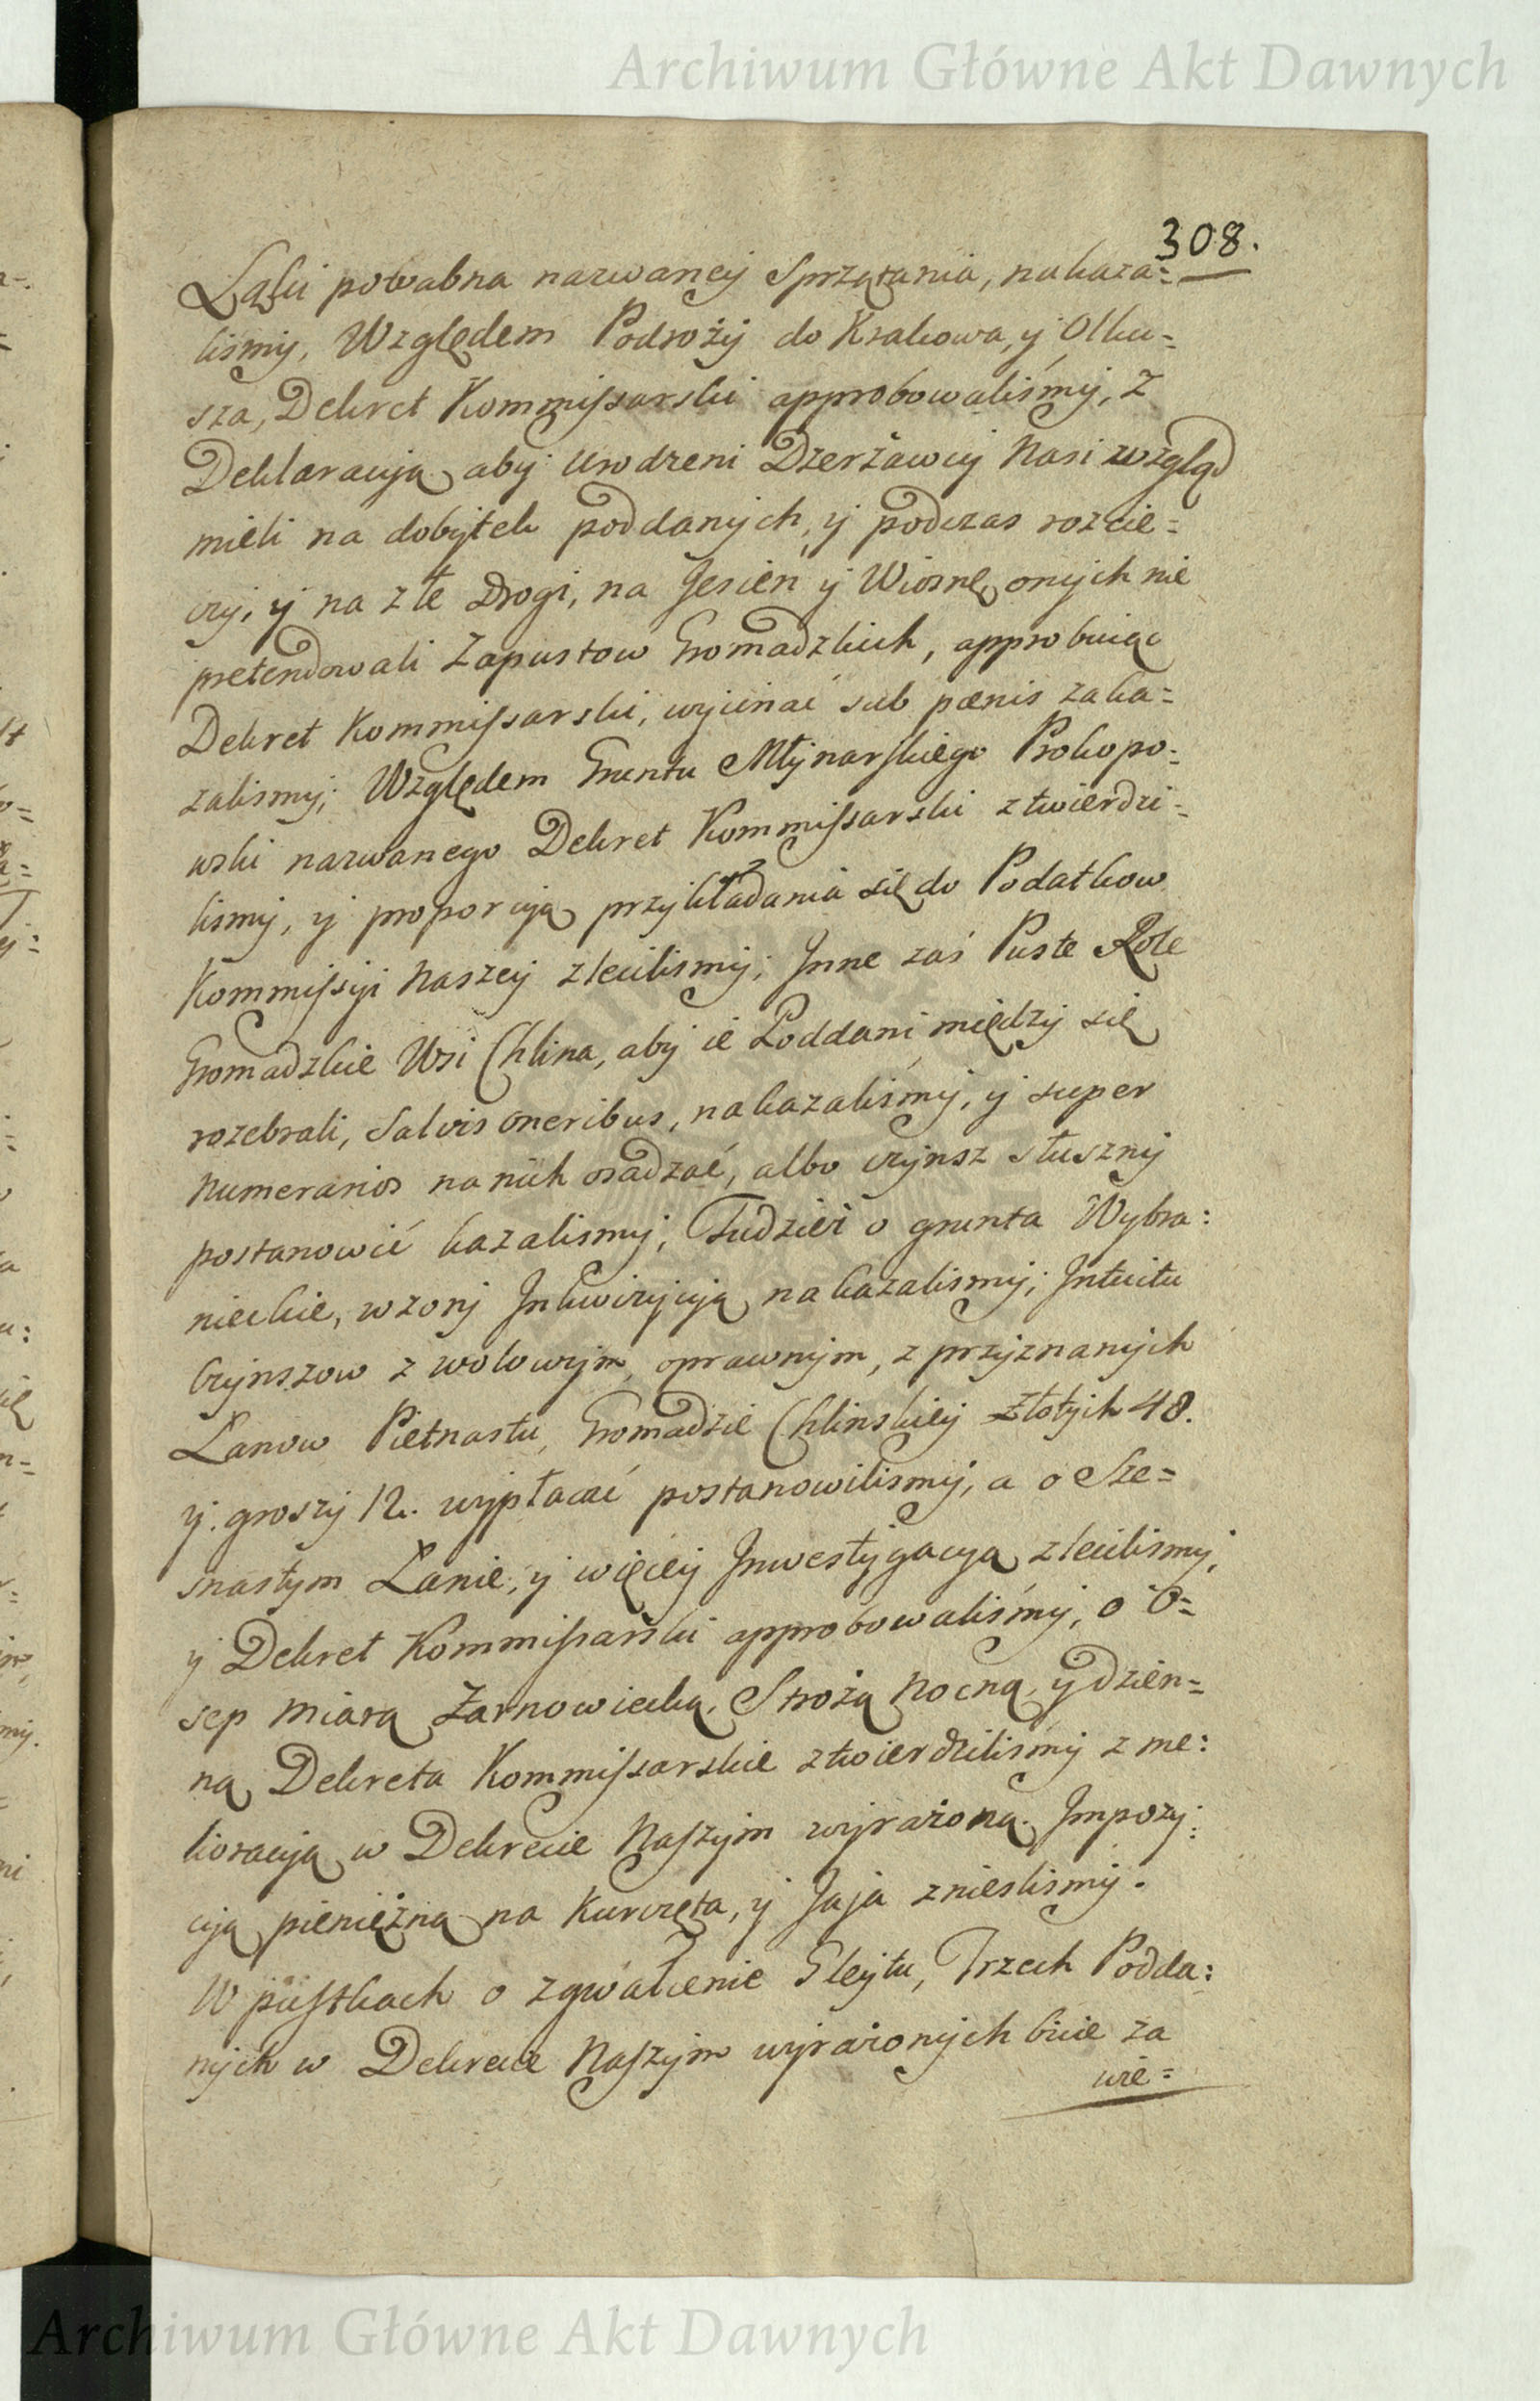 Archiwum Główne Akt Dawnych
308.
Łąki powabna nazwaney Sprzątania, nakaza=
liśmy, Względem Podroży do Krakowa, y Olku=
sza, Dekret Kommissarski approbowaliśmy, z
Deklaracyą aby Urodzeni Dzerżawcy Nasi wzgląd
mieli na dobytek poddanych, y podczas rozcie=
czy, y na złe Drogi, na Jesień y Wiosnę, onych nie
pretendowali Zapustow Gromadzkich, approbuiąc
Dekret Kommissarski, wycinać sub pænis zaka=
zalismy; Względem Gruntu Młynarskiego Prokopo=
wski nazwanego Dekret Kommissarski ztwierdzi=
lismy, y proporcyą przykładania się do Podatkow
Kommissyi Naszey zlecilismy; Inne zaś Puste Role
Gromadzkie Wsi Chlina, aby ie Poddani między się
rozebrali, Salvis oneribus, nakazaliśmy, y super
Numerarios na nich osadzać, albo czynsz słuszny
postanowić kazalismy; Tudzież o grunta Wybra:
nieckie, wzory Inkwizycyą nakazalismy; Intuitu
Czynszow z wolowym, oprawnym, z przyznanych
Łanow Piętnastu, Gromadzie Chlinskiey Złotych 48.
y. groszy 12. wypłacać postanowilismy, a o Sze=
snastym Łanie, y więcey Inwestygacyą zlecilismy,
y Dekret Kommissarski approbowaliśmy, o O=
sep miarą Żarnowiecką, Strożą Nocną, y dzien=
ną Dekreta Kommissarskie ztwierdziliśmy z me:
lioracyą w Dekrecie Naszym wyrażoną. Impozy:
cyą pieniężną na Kurczęta, y Jaja zniesliśmy.
W pustkach o zgwałcenie Gleytu, Trzech Podda:
nych w Dekrecie Naszym wyrażonych bicie za
wie=
Archiwum Główne Akt Dawnych